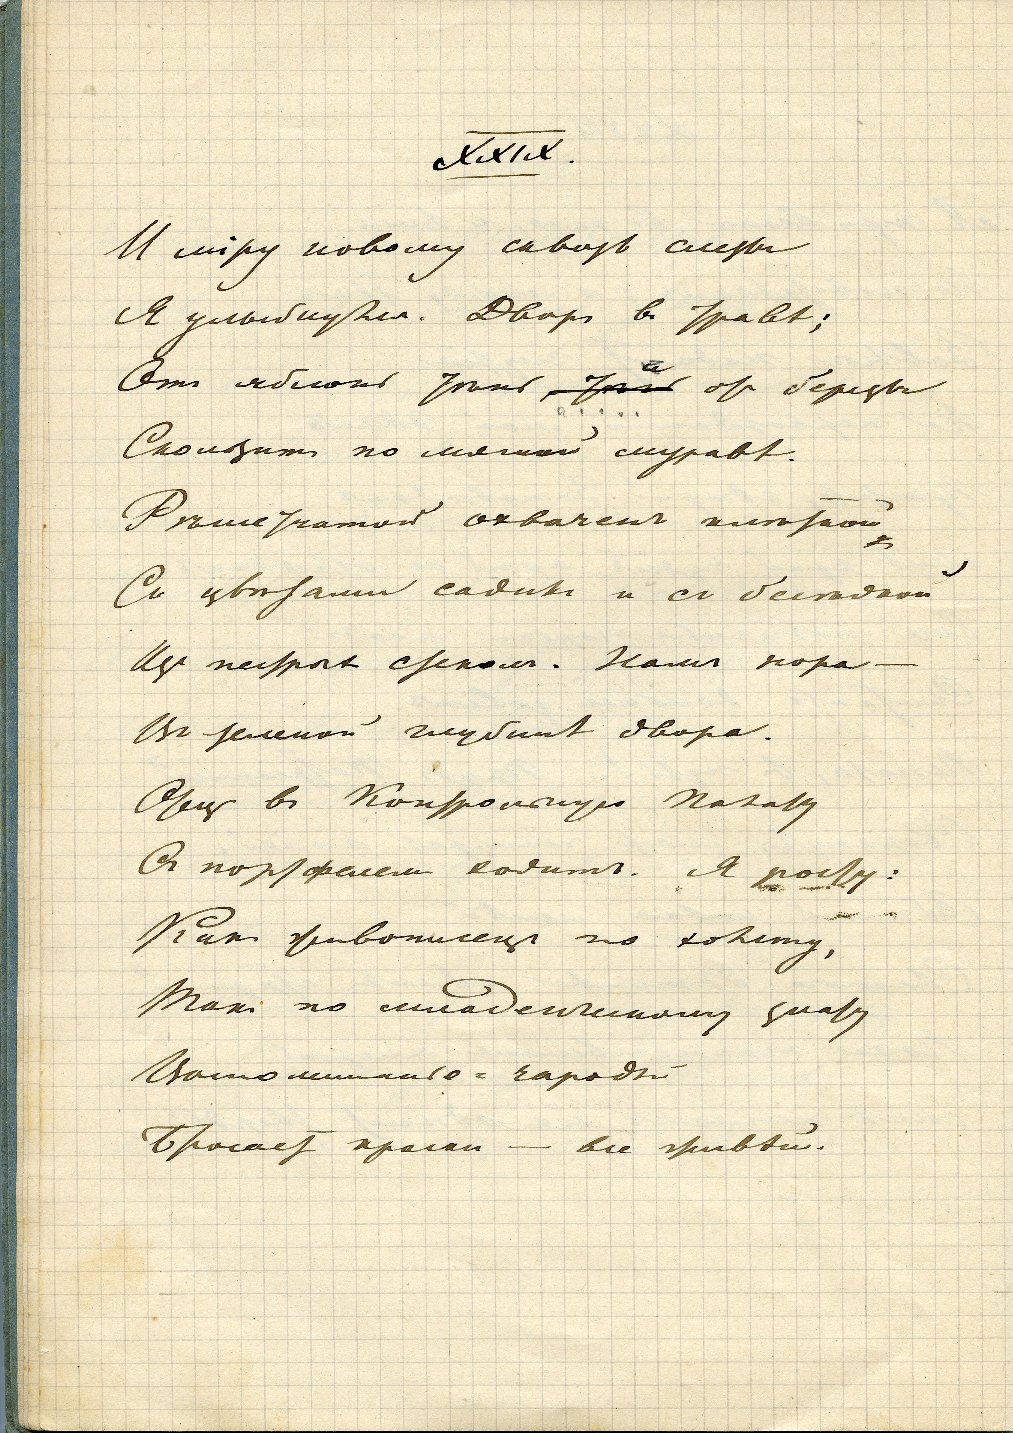 XXIX.
И міру новому сквозь слезы
Я улыбнулся. Дворъ въ травѣ;
Отъ яблонь тѣнь, тѣнь отъ березы
Скользитъ по мягкой муравѣ.
Рѣшетчатой охваченъ клѣткой
Съ цвѣтами садикъ и съ бесѣдкой
Изъ пестрыхъ стеколъ. Намъ нора —
Въ зеленой глубинѣ двора.
Отецъ въ Контрольную Палату
Съ портфелем ходитъ. Я росту:
Какъ живописецъ по холсту,
Такъ по младенческому злату
Воспоминанье-чародѣй
Бросаетъ краски — все живѣй.